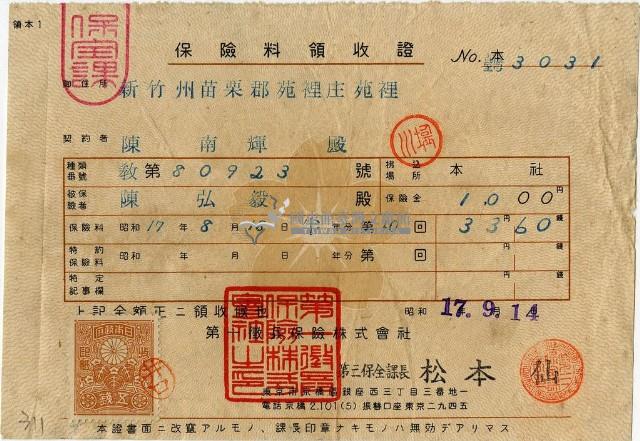 領本1
保全課
保險料領收證
No. 本 3031
御住所 新竹州苗栗郡苑裡庄苑裡
契約者 陳南輝殿
種類番號 教第80923號 拂込場所 本社
被保險者 陳弘毅殿 保險金 1,000円
保險料 昭和17年8月 日 年分第10回 33円60錢
特約保險料 昭和 年 月 日 年分第 回 円 錢
特定記事欄 円 錢
上記金額正ニ領收候也 昭和17.9.14
第一徵兵保險株式會社
第一徵兵保險株式會社之印
第三保全課長 松本 仙
東京市京橋區銀座西三丁目三番地一
電話京橋2,101(5)振替口座東京二九四五
本證書面ニ改竄アルモノ、課長印章ナキモノハ無効デアリマス